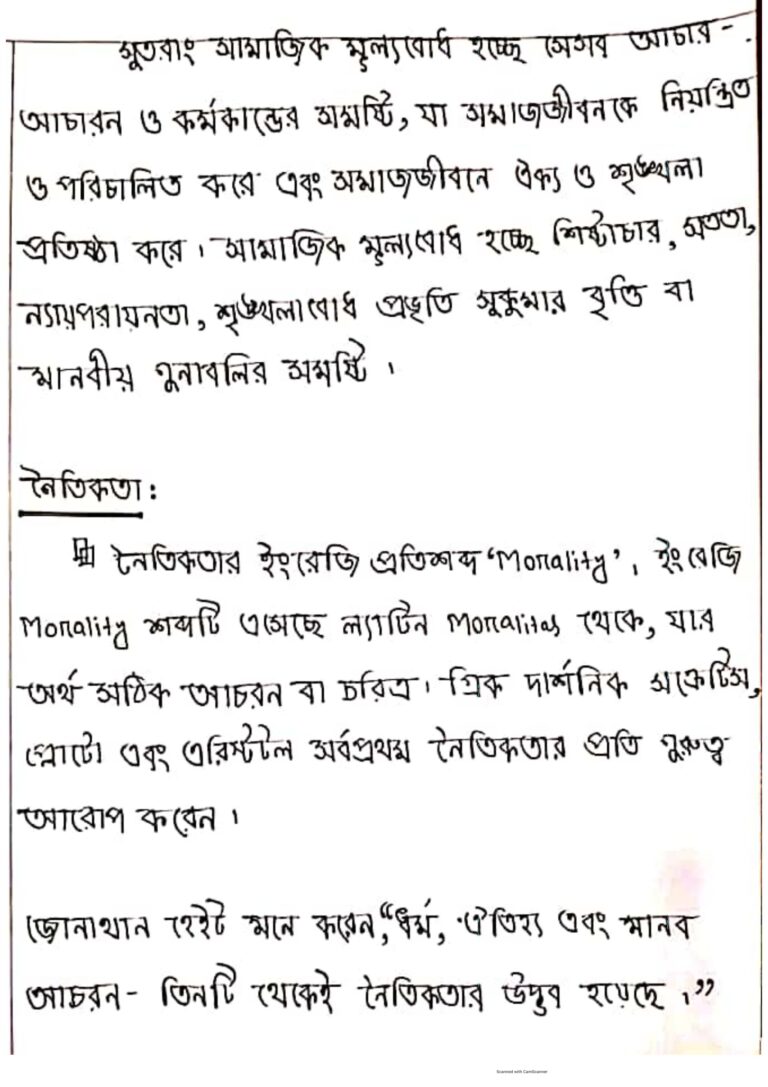 সুতরাং সামাজিক মূল্যবোধ হচ্ছে সেসব আচার-
আচারন ও কর্মকান্ডের সমষ্টি, যা সমাজজীবনকে নিয়ন্ত্রিত
ও পরিচালিত করে এবং সমাজজীবনে ঐক্য ও শৃঙ্খলা
প্রতিষ্ঠা করে। সামাজিক মূল্যবোধ হচ্ছে শিষ্টাচার, সততা,
ন্যায়পরায়নতা, শৃঙ্খলাবোধ প্রভৃতি সুকুমার বৃত্তি বা
মানবীয় গুনাবলির সমষ্টি।
নৈতিকতা:
নৈতিকতার ইংরেজি প্রতিশব্দ ‘Morality’। ইংরেজি
Morality শব্দটি এসেছে ল্যাটিন Moralitas থেকে, যার
অর্থ সঠিক আচরন বা চরিত্র। গ্রিক দার্শনিক সক্রেটিস,
প্লেটো এবং এরিস্টটল সর্বপ্রথম নৈতিকতার প্রতি গুরুত্ব
আরোপ করেন।
জোনাথান হেইট মনে করেন, “ধর্ম, ঐতিহ্য এবং মানব
আচরন- তিনটি থেকেই নৈতিকতার উদ্ভব হয়েছে।”
Scanned with CamScanner